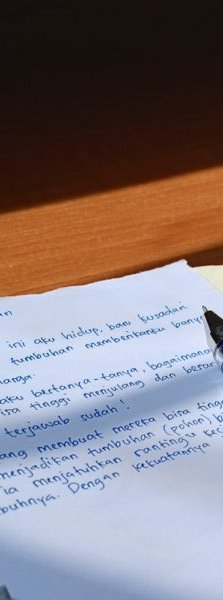 an
ini aku hidup, baru kusadari
tumbuhan memberikanku banya
harga
aku bertanya-tanya, bagaimana
isa tinggi menjulang dan besar
terjawab sudah!
ang membuat mereka bisa tingg
menjadikan tumbuhan (pohon) b
ia menjatuhkan ranting kec
buhnya. Dengan kekuatannya